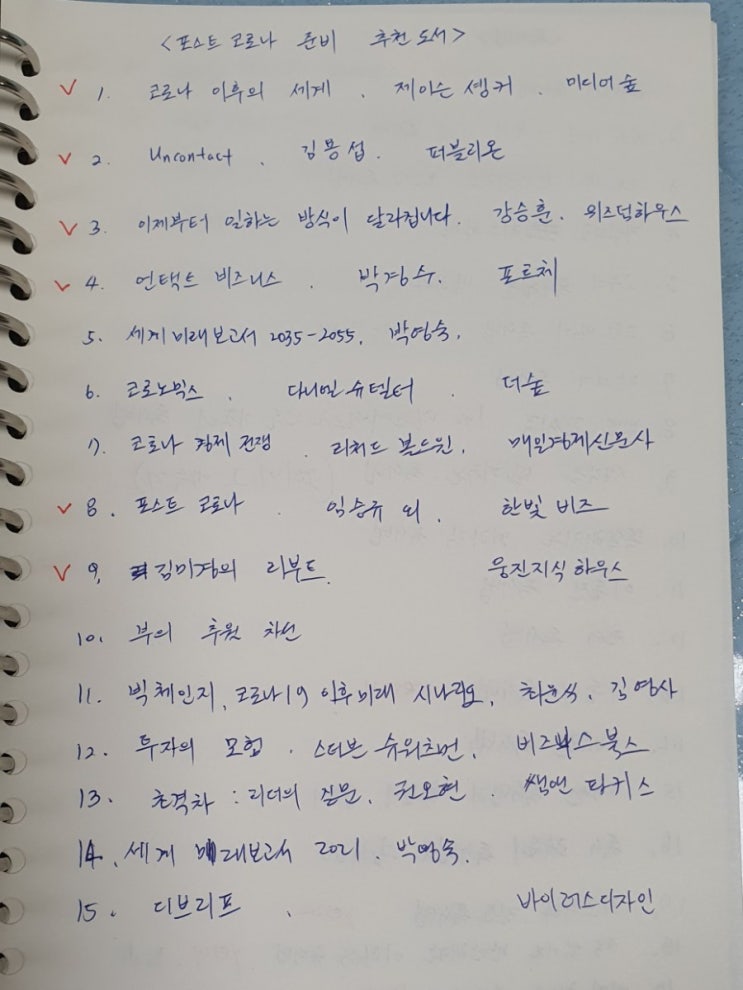 <포스트 코로나 준비 추천 도서>
✓ 1. 코로나 이후의 세계 . 제이슨 솅커 . 미디어숲
✓ 2. Uncontact . 김용섭. 퍼블리온
✓ 3. 이제부터 일하는 방식이 달라집니다. 강승훈. 위즈덤하우스
✓ 4. 언택트 비즈니스 . 박경수. 포르체
5. 세계미래보고서 2035-2055. 박영숙.
6. 코로노믹스 . 다니엘 슈텔터 . 더숲
7. 코로나 경제 전쟁 . 리처드 볼드윈. 매일경제신문사
✓ 8. 포스트 코로나 . 임승규 외 . 한빛 비즈
✓ 9. 김미경의 리부트. 웅진지식하우스
10. 부의 추월 차선
11. 빅체인지, 코로나19 이후미래 시나리오, 최윤식. 김영사
12. 투자의 모험 . 스티븐 슈워츠먼. 비즈니스북스
13. 초격차 : 리더의 질문. 권오현 쌤앤 파커스
14. 세계 미래보고서 2021. 박영숙.
15. 디브리프 . 바이러스디자인